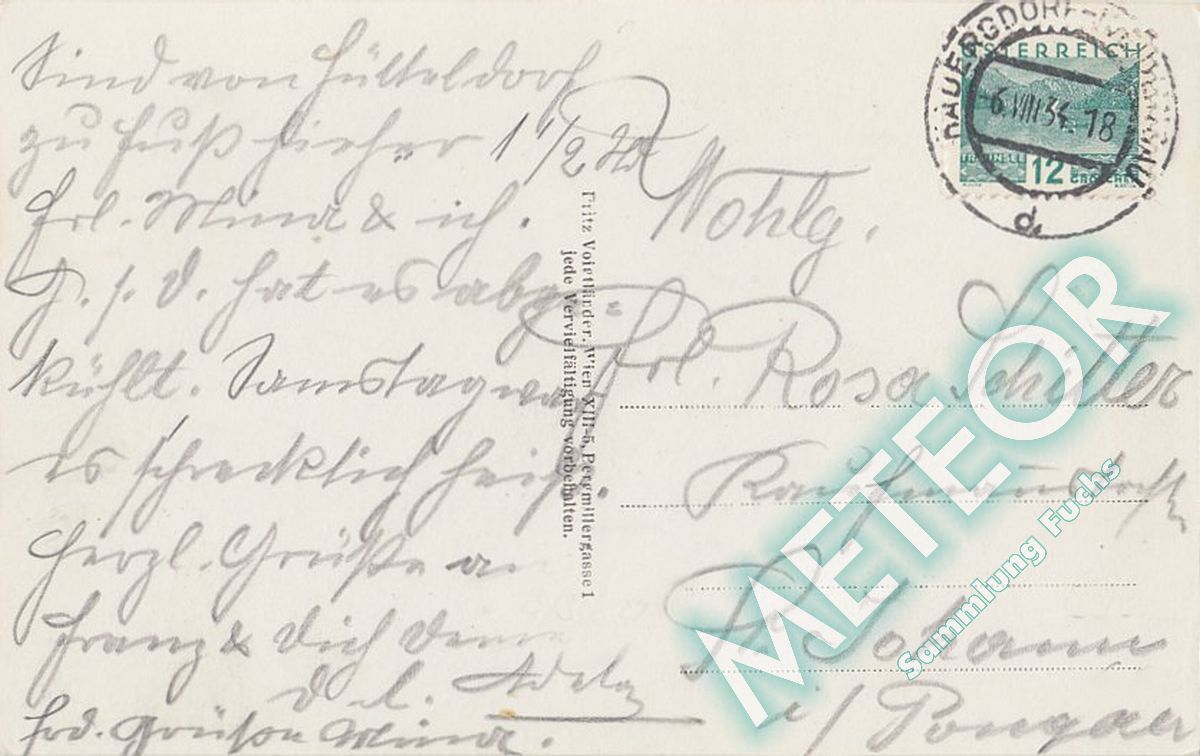 Sind von Hütteldorf
zu Fuß hieher 1 1/2 St
Frl. Mina & ich.
G. s. d. hat es abge=
kühlt. Samstag war
es schrecklich heiß.
Herzl. Grüße an
Franz & Dich Deine
d. l. Adela
frd. Grüße Mina.
Fritz Voigtländer, Wien XIII-5, Bergmillergasse 1
jede Vervielfältigung vorbehalten.
HADERSDORF-WEIDLINGAU
6.VIII.34. 18
d
ÖSTERREICH
12
GROSCHEN
Wohlg.
Frl. Rosa Schitter
St. Johann
i/ Pongau
METEOR
Sammlung Fuchs